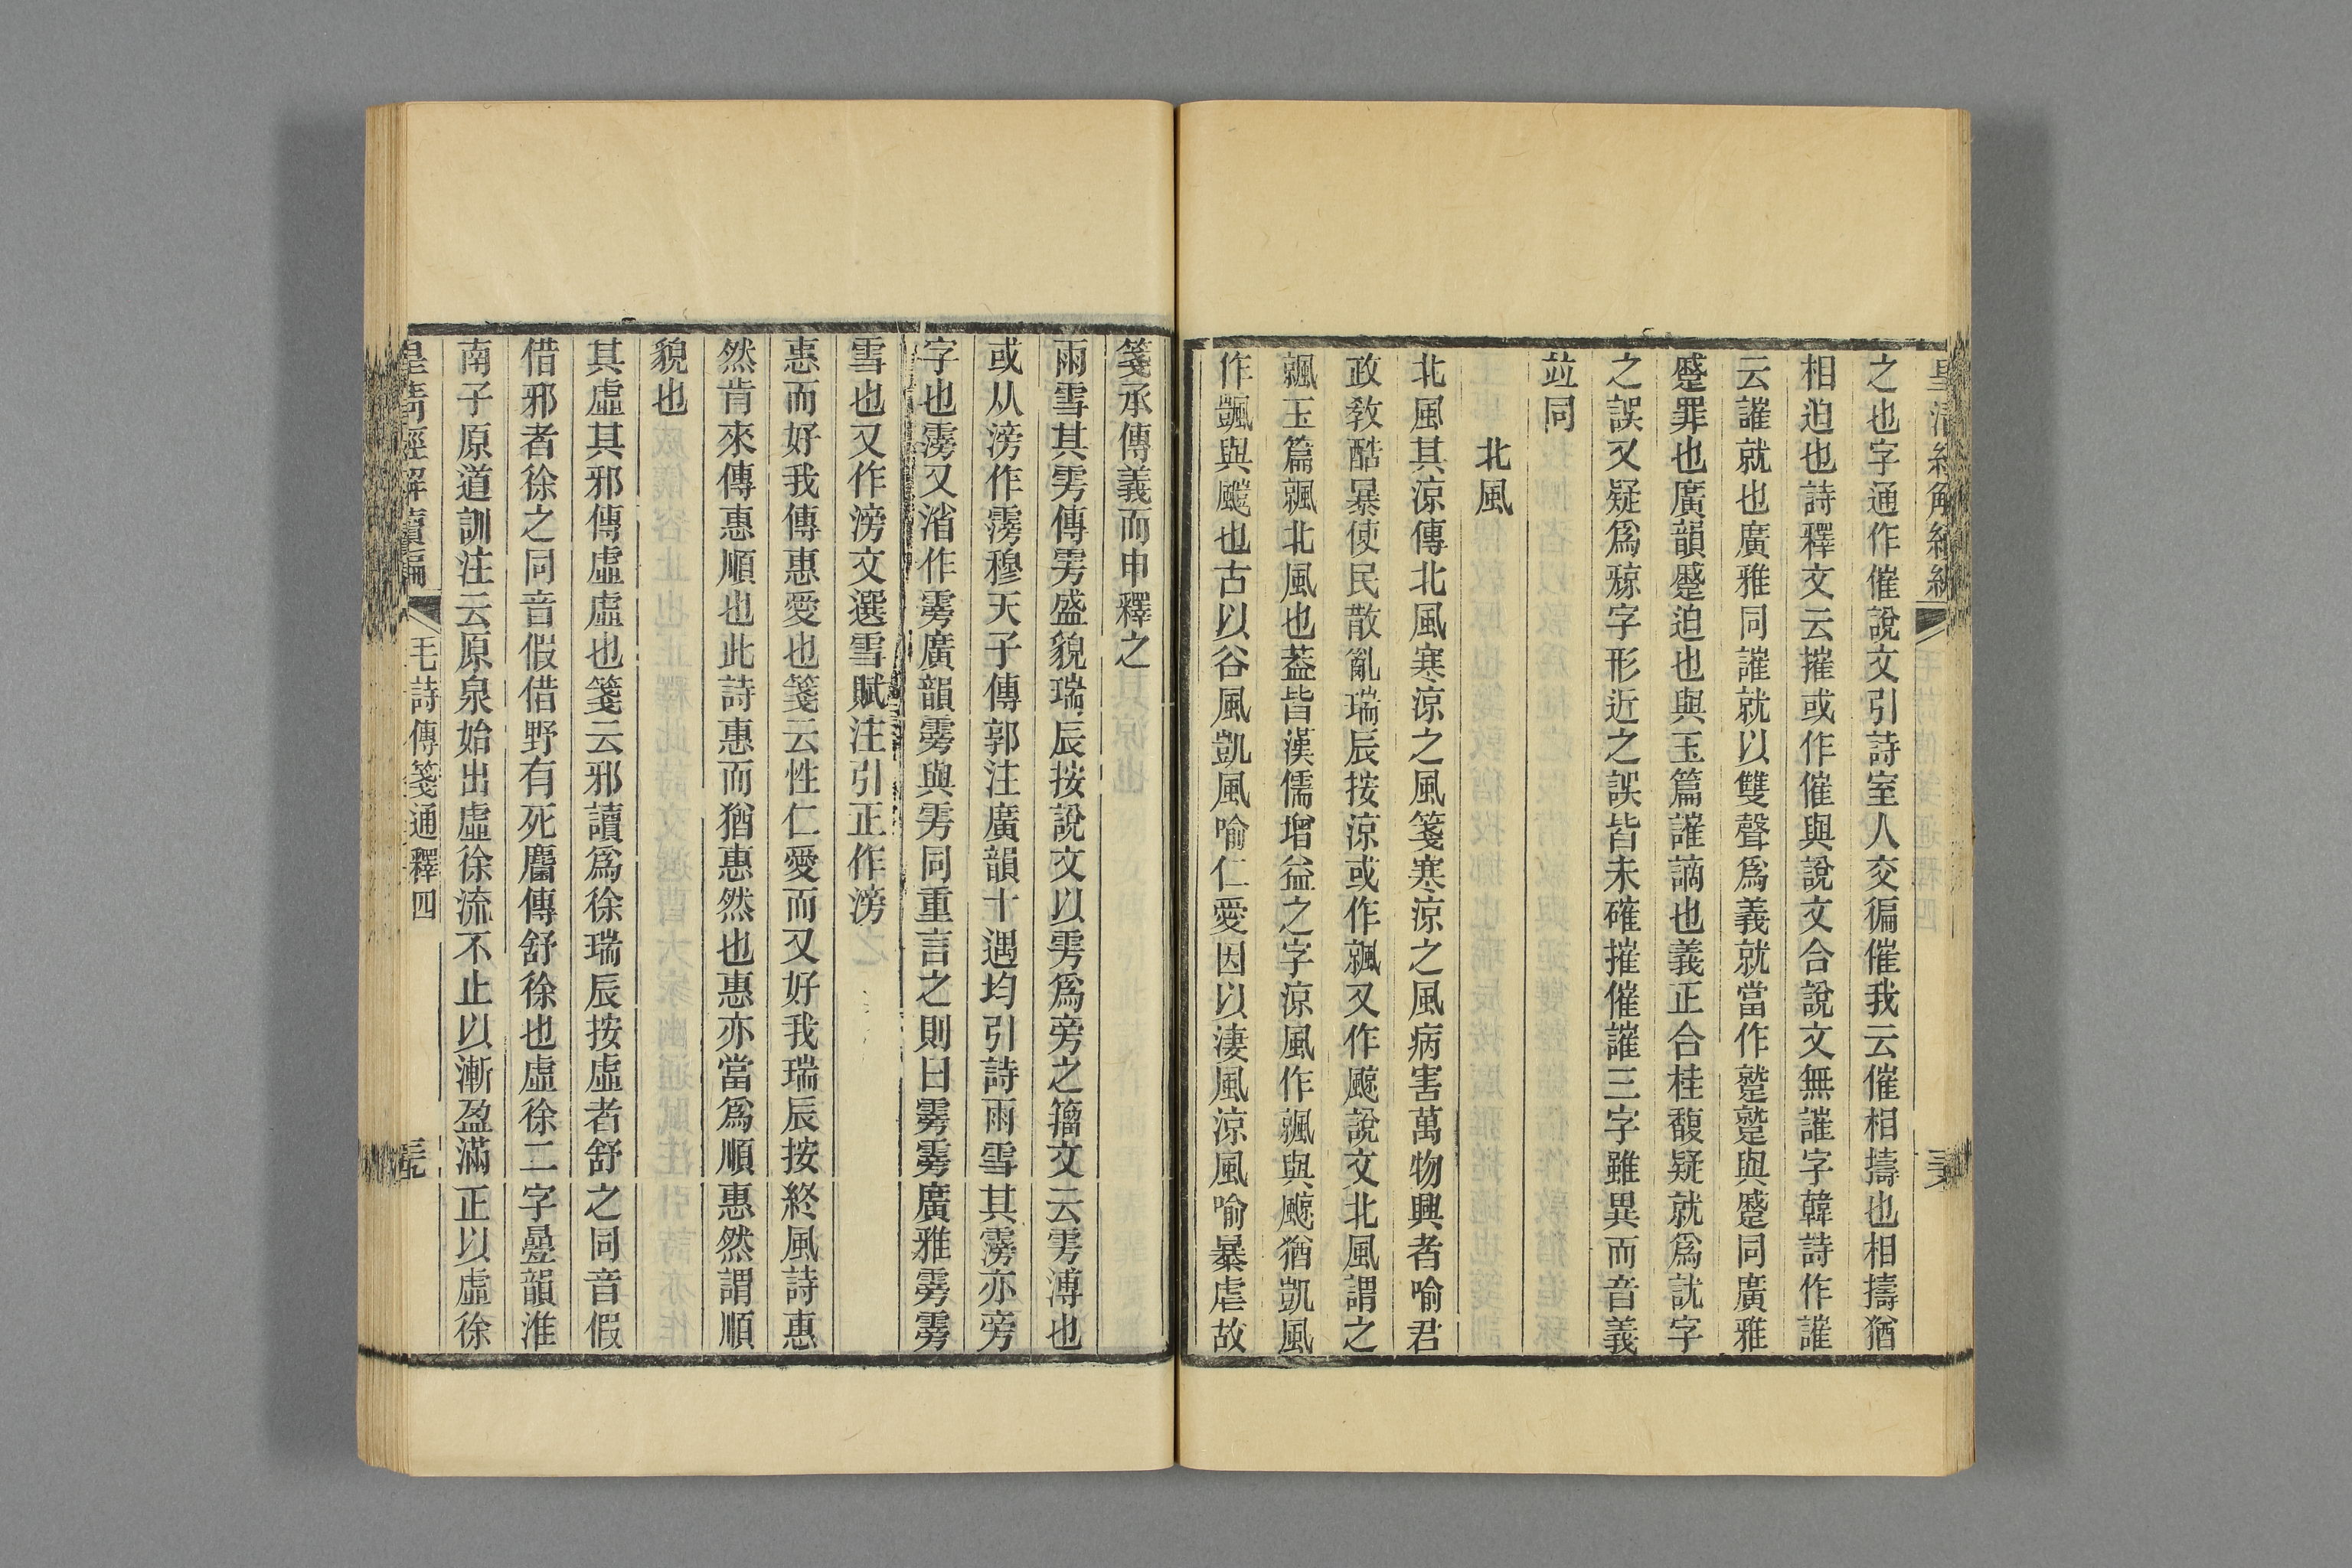 之也字通作催說文引詩室人交徧催我云催相擣也相擣猶
相迫也詩釋文云摧或作催與說文合說文無讙字韓詩作讙
云讙就也廣雅同讙就以雙聲爲義就當作蹵蹵與蹙同廣雅
蹙罪也廣韻蹙迫也與玉篇讙謫也義正合桂馥疑就爲訧字
之誤又疑爲㹁字形近之誤皆未確摧催讙三字雖異而音義
竝同
北風
北風其涼傳北風寒涼之風箋寒涼之風病害萬物興者喻君
政敎酷暴使民散亂瑞辰按涼或作飊又作飈說文北風謂之
飊玉篇飊北風也葢皆漢儒增益之字涼風作飊與飈猶凱風
作颽與䬠也古以谷風凱風喻仁愛因以淒風涼風喻暴虐故
箋承傳義而申釋之
雨雪其雱傳雱盛貌瑞辰按說文以雱爲旁之籀文云雱溥也
或从滂作霶穆天子傳郭注廣韻十遇均引詩雨雪其霶亦旁
字也霶又渻作雱廣韻霶與雱同重言之則曰霶霶廣雅霶霶
雪也又作滂文選雪賦注引正作滂
惠而好我傳惠愛也箋云性仁愛而又好我瑞辰按終風詩惠
然肯來傳惠順也此詩惠而猶惠然也惠亦當爲順惠然謂順
貌也
其虛其邪傳虛虛也箋云邪讀爲徐瑞辰按虛者舒之同音假
借邪者徐之同音假借野有死麕傳舒徐也虛徐二字曡韻淮
南子原道訓注云原泉始出虛徐流不止以漸盈滿正以虛徐
皇淸經解續編
毛詩傳箋通釋四